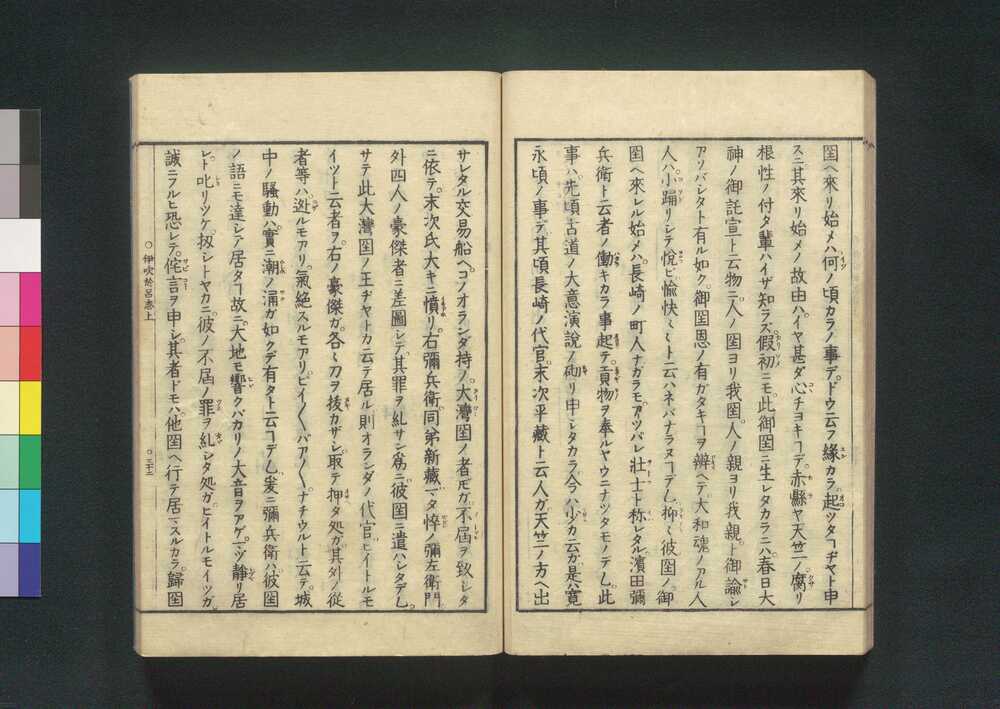 圀ヘ來リ始メハ何ノ頃カラノ事デドウ云フ緣カラ起ツタヿヂヤト申
スニ其來リ始メノ故由ハイヤ甚ダ心チヨキヿデ赤縣ヤ天竺ノ腐リ
根性ノ付タ輩ハイザ知ラズ假初ニモ此御圀ニ生レタカラニハ春日大
神ノ御託宣ト云物ニ人ノ圀ヨリ我圀人ノ親ヨリ我親ト御諭シ
アソバシタト有ル如ク御圀恩ノ有ガタキヿヲ辨ヘテ大和魂ノアル人
人ハ小踊リシテ悅ビ愉快〱ト云ハネバナラヌヿデム抑〻彼圀ノ御
圀ヘ來レル始メハ長崎ノ町人ナガラモアツパレ壯士ト称レタル濱田彌
兵衛ト云者ノ働キカラ事起テ貢物ヲ奉ルヤウニナツタモノデム此
事ハ先頃古道ノ大意演說ノ砌リ申シタカラ今ハ少カ云ガ是ハ寛
永頃ノ事デ其頃長崎ノ代官末次平藏ト云人ガ天竺ノ方ヘ出
サレタル交易船ヘコノオランダ持ノ大灣圀ノ者𪜈ガ不屆ヲ致シタ
ニ依テ末次氏大キニ憤リ右彌兵衛同弟新藏マタ悴ノ彌左衛門
外四人ノ豪傑者ニ差圖シテ其罪ヲ糺サン爲ニ彼圀ニ遣ハレタデム
サテ此大灣圀ノ王ヂヤトカ云テ居ル則オランダノ代官ヒイトルモ
イツト云者ヲ右ノ豪傑ガ各〻刀ヲ拔カザシ取テ押タ処ガ其外ノ從
者等ハ迯ルモアリ氣絕スルモアリピイ〱バア〱ナチウルト云テ城
中ノ騷動ハ實ニ潮ノ涌ガ如クデ有タト云ヿデム爰ニ彌兵衛ハ彼圀
ノ語ニモ達シテ居タヿ故ニ大地モ響クバカリノ大音ヲアゲ一ツ靜リ居
レト叱リツケ扨シトヤカニ彼ノ不屆ノ罪ヲ糺シタ処ガヒイトルモイツガ
誠ニフルヒ恐レテ侘言ヲ申シ其者ドモハ他圀ヘ行テ居マスルカラ歸圀
○伊吹於呂志上
○三十三